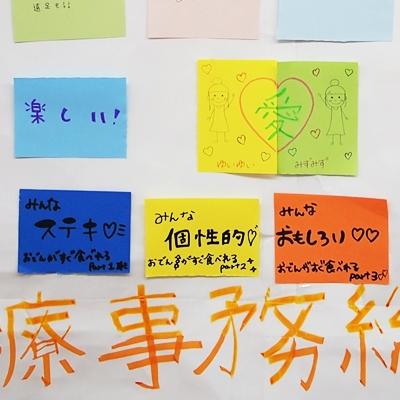 遠足もる
楽しい!
愛
ゆいゆい
みずみず
みんな
ステキ♡
おでんがすぐ食べれる
Part1
みんな
個性的♡
おでんがすぐ食べれる
part2
みんな
おもしろい♡♡
おでんがすぐ食べれる
part3
療事務総